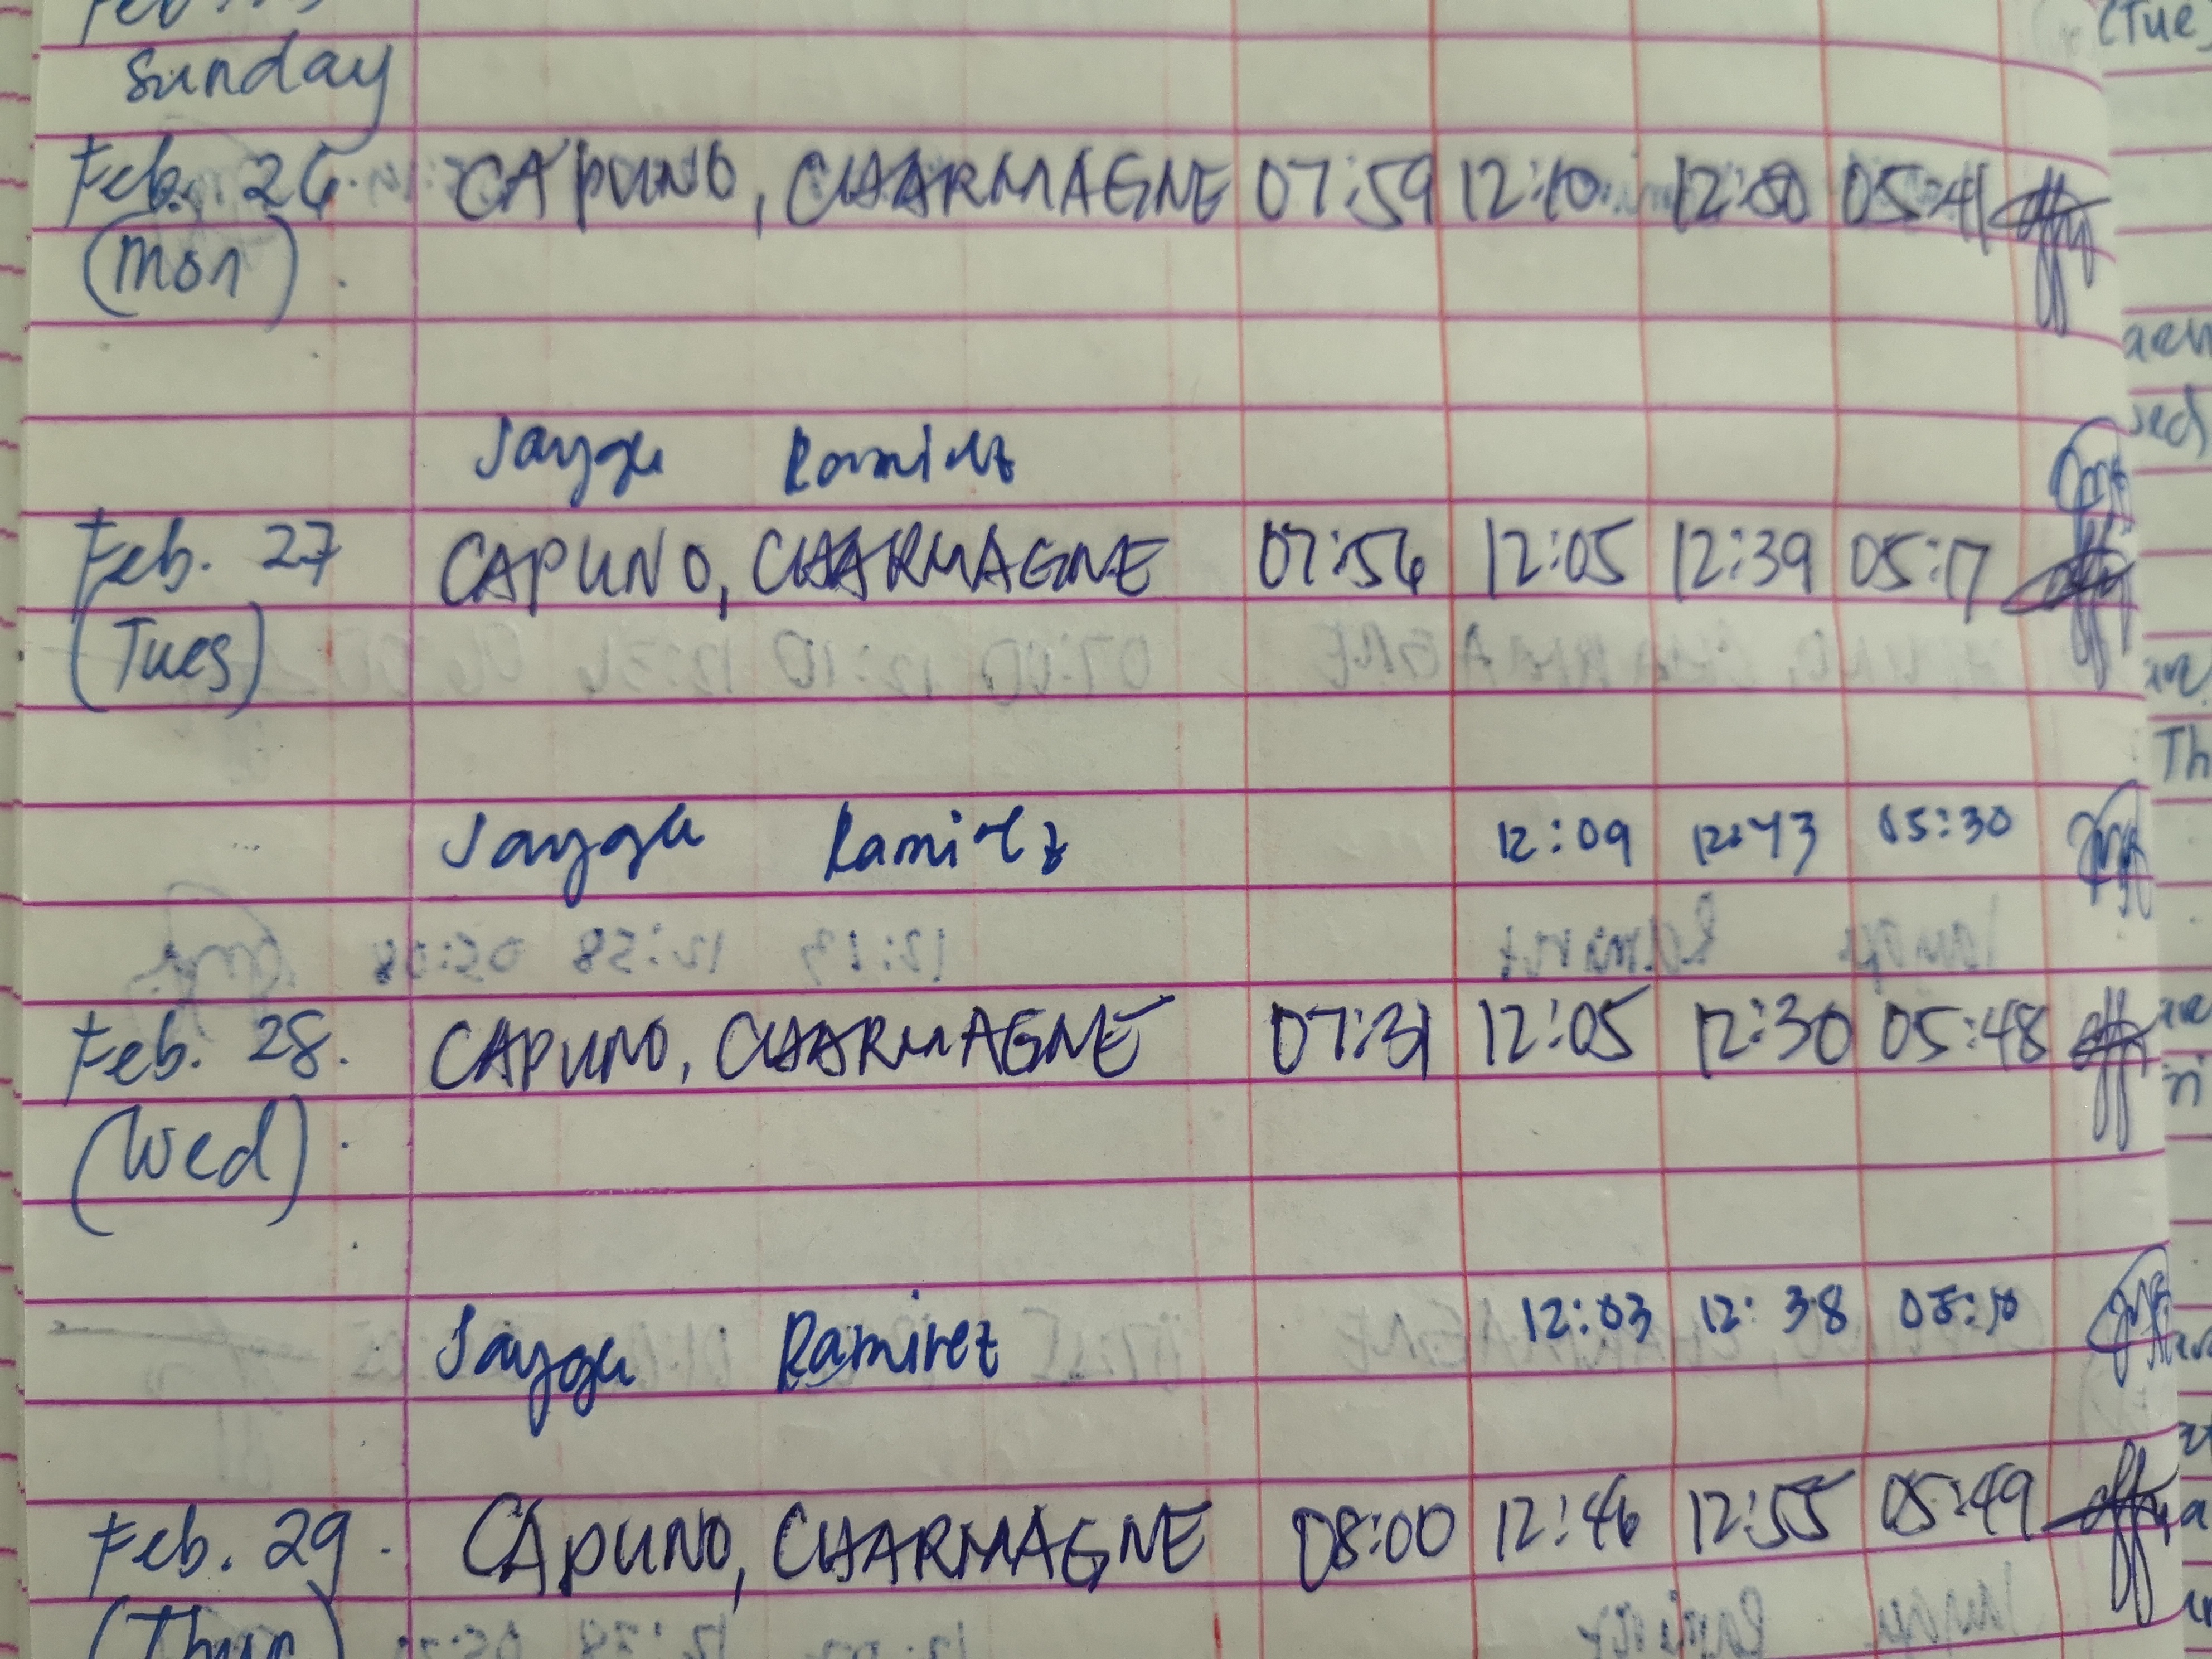 Sunday
Feb. 26. CAPUNO, CHARMAGNE 07:59 12:10 05:41
(Mon)
Ramirez
Feb. 27 CAPUNO, CHARMAGNE 07:56 12:05 12:39 05:17
(Tues)
Ramirez 12:09 12:43 05:30
Feb. 28. CAPUNO, CHARMAGNE 07:31 12:05 12:30 05:48
(Wed)
Ramirez 12:03 12:38
Feb. 29. CAPUNO, CHARMAGNE 08:00 12:46 12:55 05:49
(Thur)